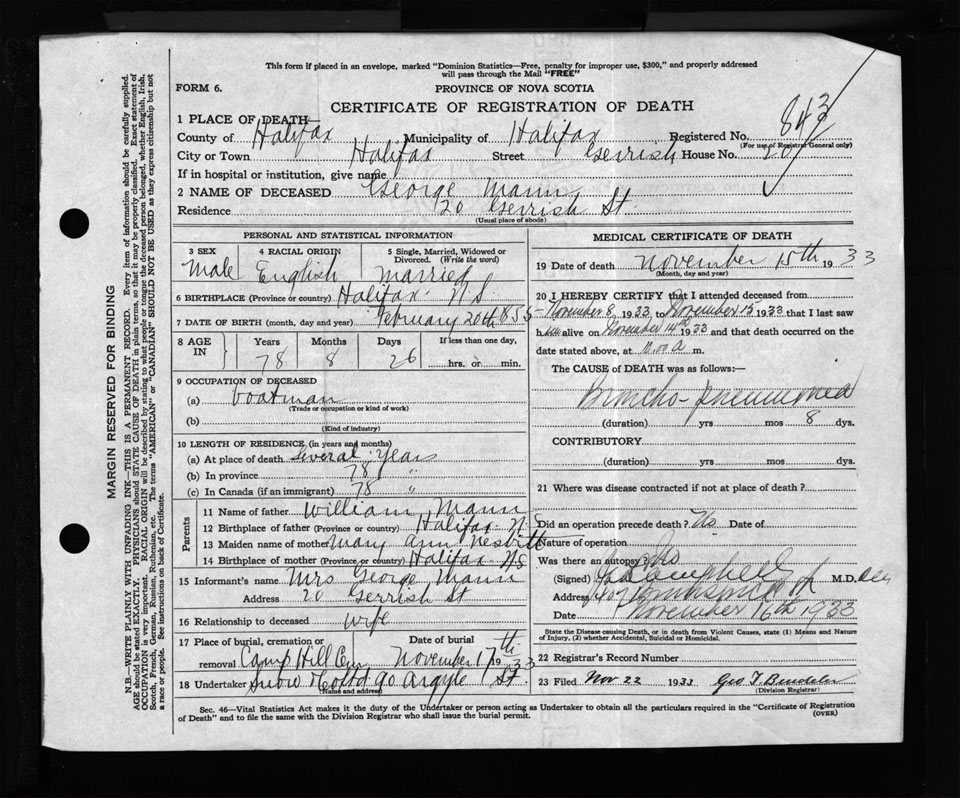 This form if placed in an envelope, marked "Dominion Statistics—Free, penalty for improper use, $300," and properly addressed
will pass through the Mail "FREE"
FORM 6.
PROVINCE OF NOVA SCOTIA
CERTIFICATE OF REGISTRATION OF DEATH
843
1 PLACE OF DEATH—
County of Halifax Municipality of Halifax Registered No.
(For use of Registrar General only)
City or Town Halifax Street Gerrish House No. 20
If in hospital or institution, give name
2 NAME OF DECEASED George Mann
Residence 20 Gerrish St.
(Usual place of abode)
PERSONAL AND STATISTICAL INFORMATION
3 SEX 4 RACIAL ORIGIN 5 Single, Married, Widowed or
Divorced. (Write the word)
Male English Married
6 BIRTHPLACE (Province or country) Halifax N.S.
7 DATE OF BIRTH (month, day and year) February 20th 1855
8 AGE IN Years Months Days If less than one day,
78 8 26 hrs. or min.
9 OCCUPATION OF DECEASED
(a) Boatman
(Trade or occupation or kind of work)
(b)
(Kind of industry)
10 LENGTH OF RESIDENCE (in years and months)
(a) At place of death Several Years
(b) In province 78 "
(c) In Canada (if an immigrant) 78 "
Parents
11 Name of father William Mann
12 Birthplace of father (Province or country) Halifax N.S
13 Maiden name of mother Mary Ann Nesbitt
14 Birthplace of mother (Province or country) Halifax N.S
15 Informant's name Mrs George Mann
Address 20 Gerrish St
16 Relationship to deceased wife
17 Place of burial, cremation or Date of burial
removal Camp Hill Cem November 17th 1933
18 Undertaker Snow & Co Ltd 90 Argyle St.
(Name and address)
MEDICAL CERTIFICATE OF DEATH
19 Date of death November 15th 1933
(Month, day and year)
20 I HEREBY CERTIFY that I attended deceased from
November 8 1933 to November 15 1933 that I last saw
him alive on November 14th 1933 and that death occurred on the
date stated above, at m.
The CAUSE of DEATH was as follows:—
Broncho-pneumonia
(duration) yrs mos 8 dys.
CONTRIBUTORY
(duration) yrs. mos. dys.
21 Where was disease contracted if not at place of death?
Did an operation precede death? No Date of
Nature of operation
Was there an autopsy? No
(Signed) Campbell M.D.
Address
Date November 16th 1933
State the Disease causing Death, or in death from Violent Causes, state (1) Means and Nature
of Injury, (2) whether Accidental, Suicidal or Homicidal.
22 Registrar's Record Number
23 Filed Nov 22 1933 Geo T
(Division Registrar)
Sec. 46—Vital Statistics Act makes it the duty of the Undertaker or person acting as Undertaker to obtain all the particulars required in the "Certificate of Registration
of Death" and to file the same with the Division Registrar who shall issue the burial permit.
(OVER)
MARGIN RESERVED FOR BINDING
N.B.—WRITE PLAINLY WITH UNFADING INK—THIS IS A PERMANENT RECORD. Every item of information should be carefully supplied.
AGE should be stated EXACTLY. PHYSICIANS should STATE CAUSE OF DEATH in plain terms, so that it may be properly classified. Exact statement of
OCCUPATION is very important. RACIAL ORIGIN will be described by stating to what people or tongue the deceased person belonged, whether English, Irish,
Scotch, French, German, Russian, Ruthenian, etc. The terms "AMERICAN" or "CANADIAN" SHOULD NOT BE USED as they express citizenship but not
a race or people. See instructions on back of Certificate.